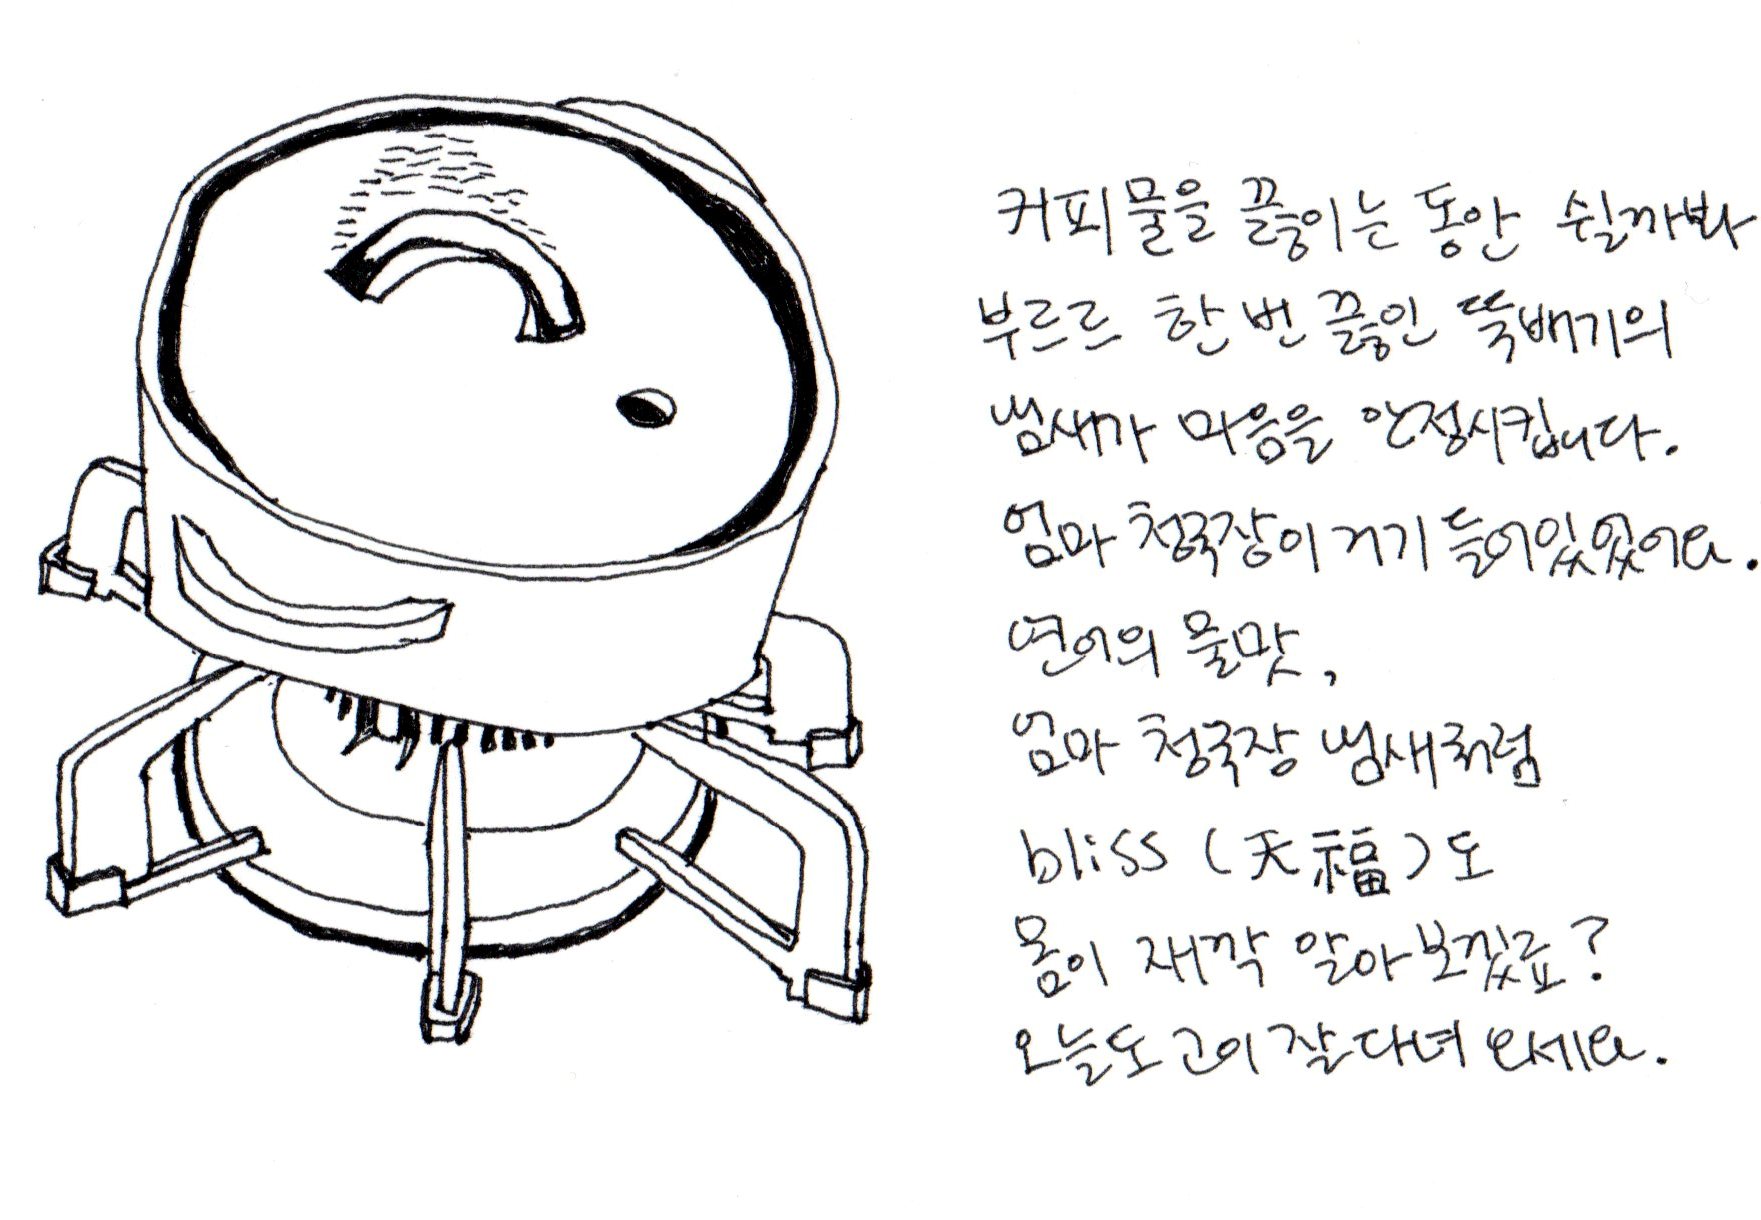 커피물을 끓이는 동안 쉴까봐
부르르 한 번 끓인 뚝배기의
냄새가 마음을 안정시킵니다.
엄마 청국장이 거기 들어있었어요.
연어의 물맛,
엄마 청국장 냄새처럼
bliss (天福)도
몸이 재깍 알아보겠죠?
오늘도 고이 잘 다녀 오세요.